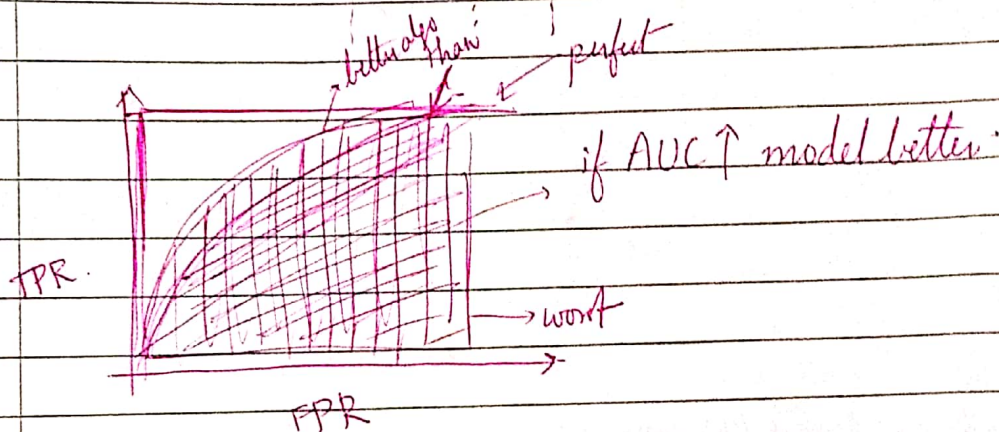 better algo
than
perfect
if AUC↑ model better.
TPR.
→ worst
FPR